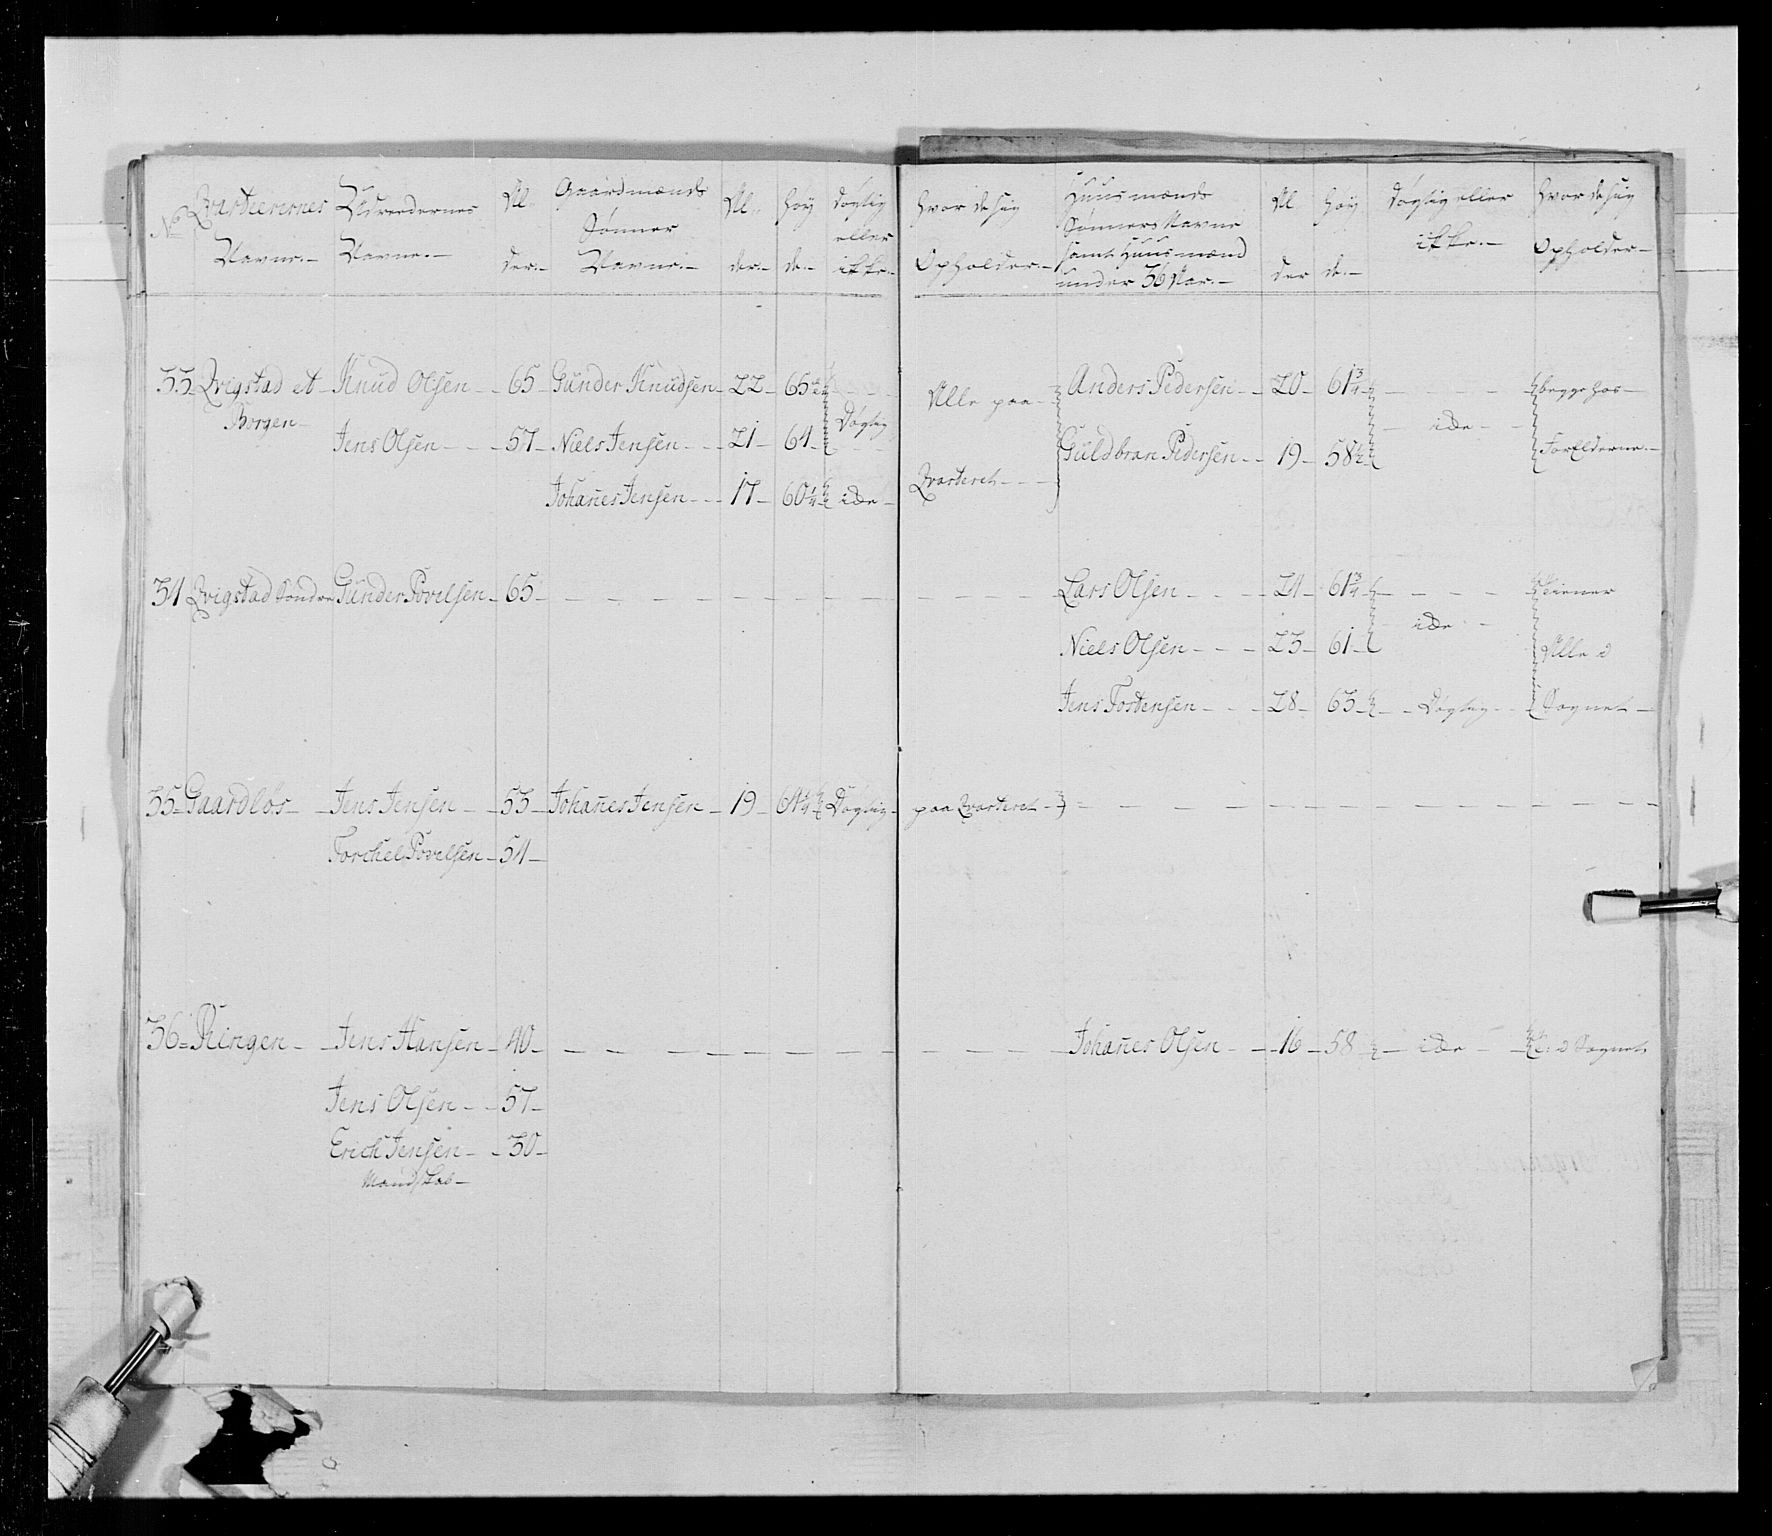 No Qvarteerernes Navne.- Udreedernes Navne.- Al- der.- Gaardmænds Sønner Navne.- Al- der.- Høy de.- Døgtig eller ikke.- Hvor de sig Opholder.- Huusmænds Sønners Navne samt Huusmænd under 36 Aar.- Al der Høy de.- Døgtig eller ikke.- Hvor de sig Opholder.-
33- Qvigstad et Knud Olsen - 65 - Gunder Knudsen - 22 - 65½ - - - Alle paa - Anders Pedersen - 20 - 61¾ - - - - begge hos -
Borgen - Jens Olsen - - - 57 - Niels Jensen - - - 21 - 64 - Døgtig Guldbran Pedersen - - 19 - 58½ - ide - Forælderne -
Johanes Jensen - - - 17 - 60¼ ide - Qvarteret - - -
34 Qvigstad Søndre Gunder Povelsen - 65 - - - - - - - - - - Lars Olsen - - - - 24 - 61¾ - - - - tiener
Niels Olsen - - - 23 - 61 - ide - Alle i
Jens Tostensen - - - 28 - 63 - - Døgtig - - Sognet -
35- Gaardløs - - Jens Jensen - - 53 - Johanes Jensen - 19 - 64¼ Døgtig - paa Qvarteret - - - - - - - - - - - -
Torchel Povelsen - 54 -
36- Ringen - - Jens Hansen - 40 - - - - - - - - - - Johanes Olsen - - - 16 - 58 - ide - t: i Sognet
Jens Olsen - - 57 -
Erich Jensen - - 30 -
Mandskab -